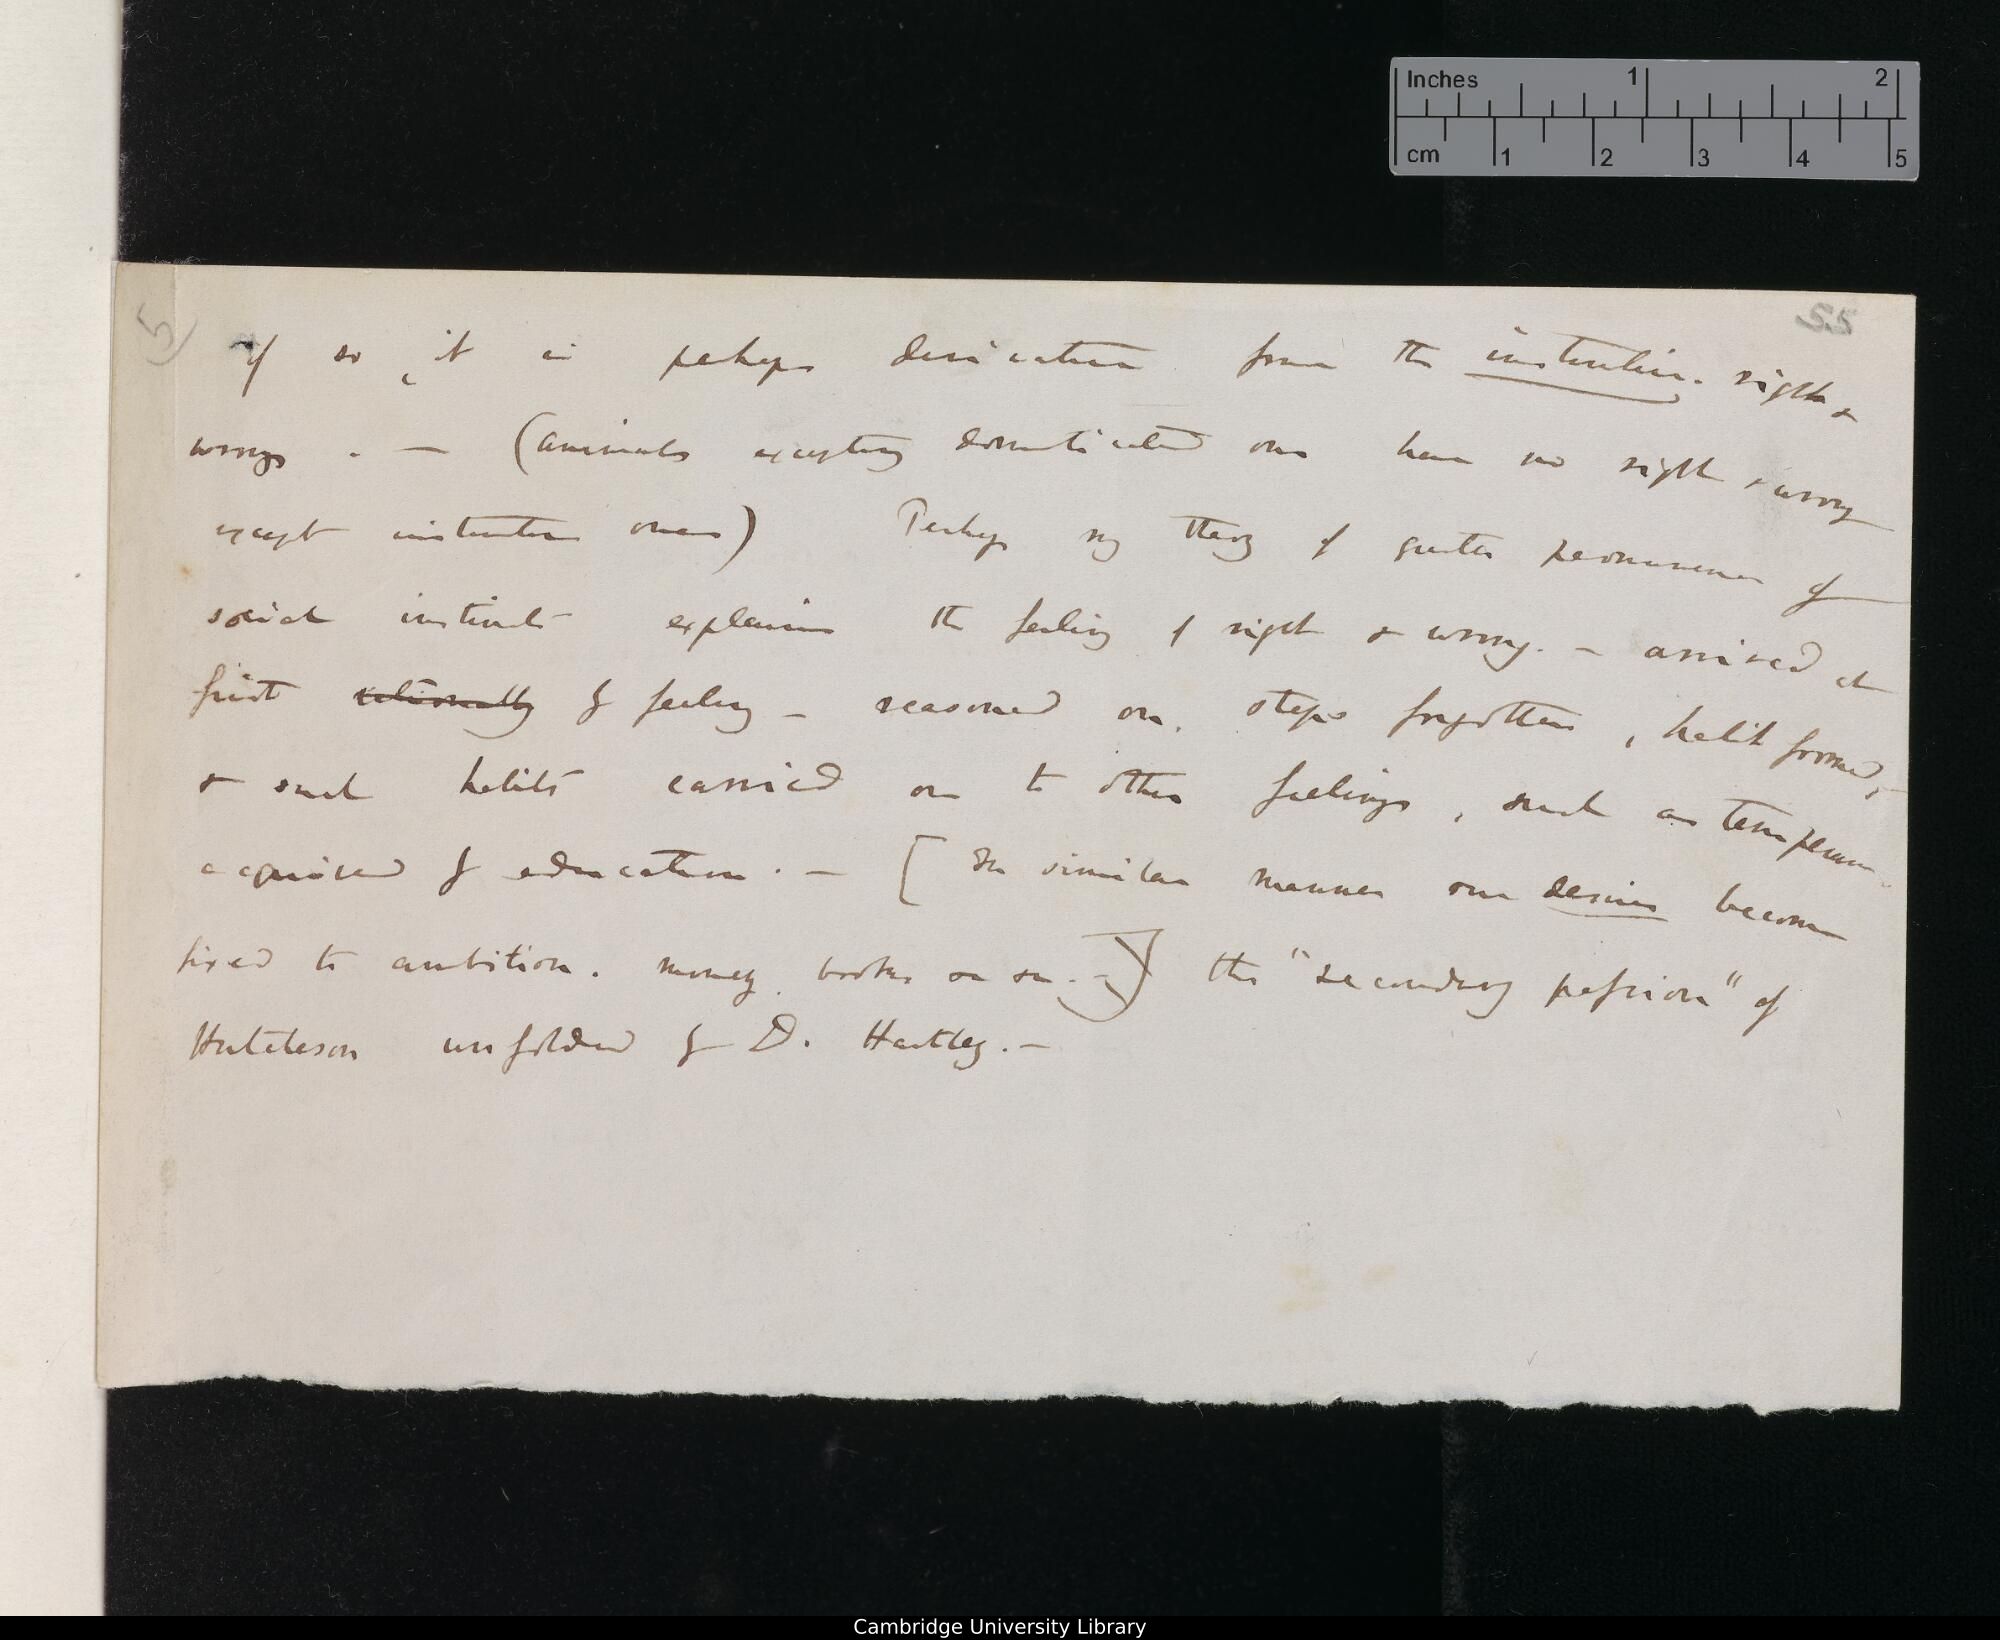 Inches 1 2
cm 1 2 3 4 5
5
55
if so, it is perhaps derivation from the instinctive. right &
wrongs. — (animals excepting domesticated ones have no right & wrong
except instinctive ones) Perhaps my theory of greater permanence of
social instincts explains the feeling of right & wrong. — arrived at
first rationally by feeling — reasoned on, steps forgotten, habit formed, —
& such habits carried on to other feelings, such as temperance
acquired by education. — [In similar manner our desires become
fixed to ambition. money, books &c &c. —] the "secondary passion" of
Hutcheson unfolded by D. Hartley. —
Cambridge University Library